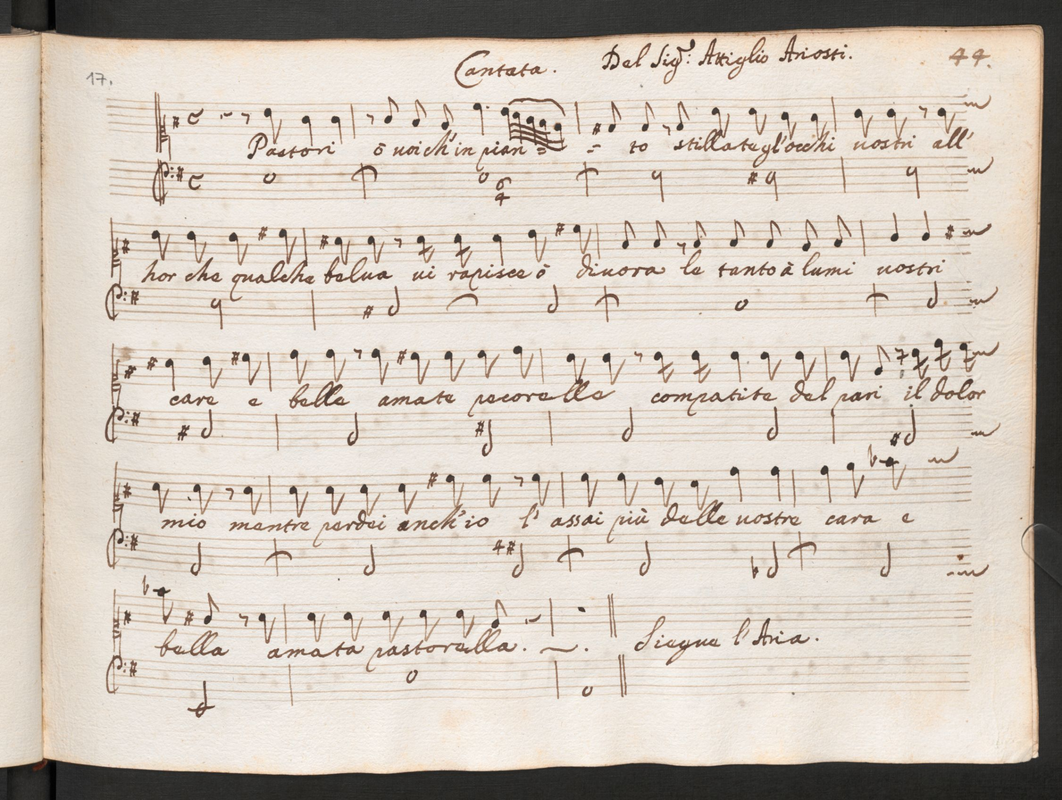 17.
Cantata. Del Sig.r: Attiglio Ariosti. 44.
Pastori ò voi ch'in pian - - to stillate gl'occhi vostri all'
6
4
hor che qualche belua vi rapisce ò divora le tanto à lumi vostri
care e belle amate pecorelle compatite del pari il dolor
mio mentre perdei anch'io l'assai più delle vostre cara e
4
bella amata pastorella. Siegue l'Aria.